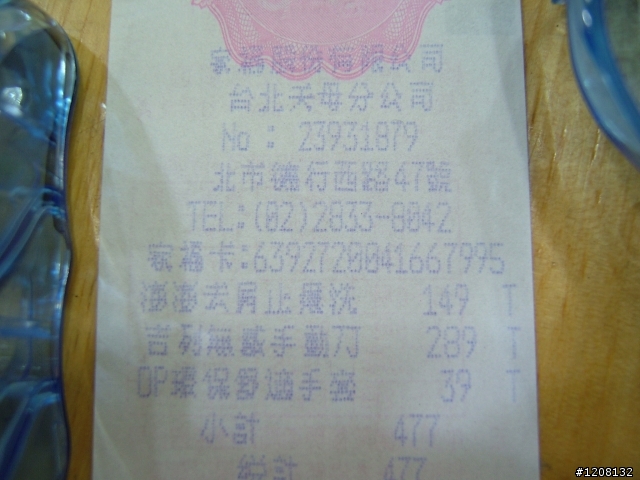 家福股份有限公司
台北天母分公司
No : 23931879
北市德行西路47號
TEL:(02)2833-8042
家福卡:6392720041667995
澎澎去屑止癢洗 149 T
吉列無感手動刀 289 T
OP環保舒適手套 39 T
小計 477
總計 477
#1208132